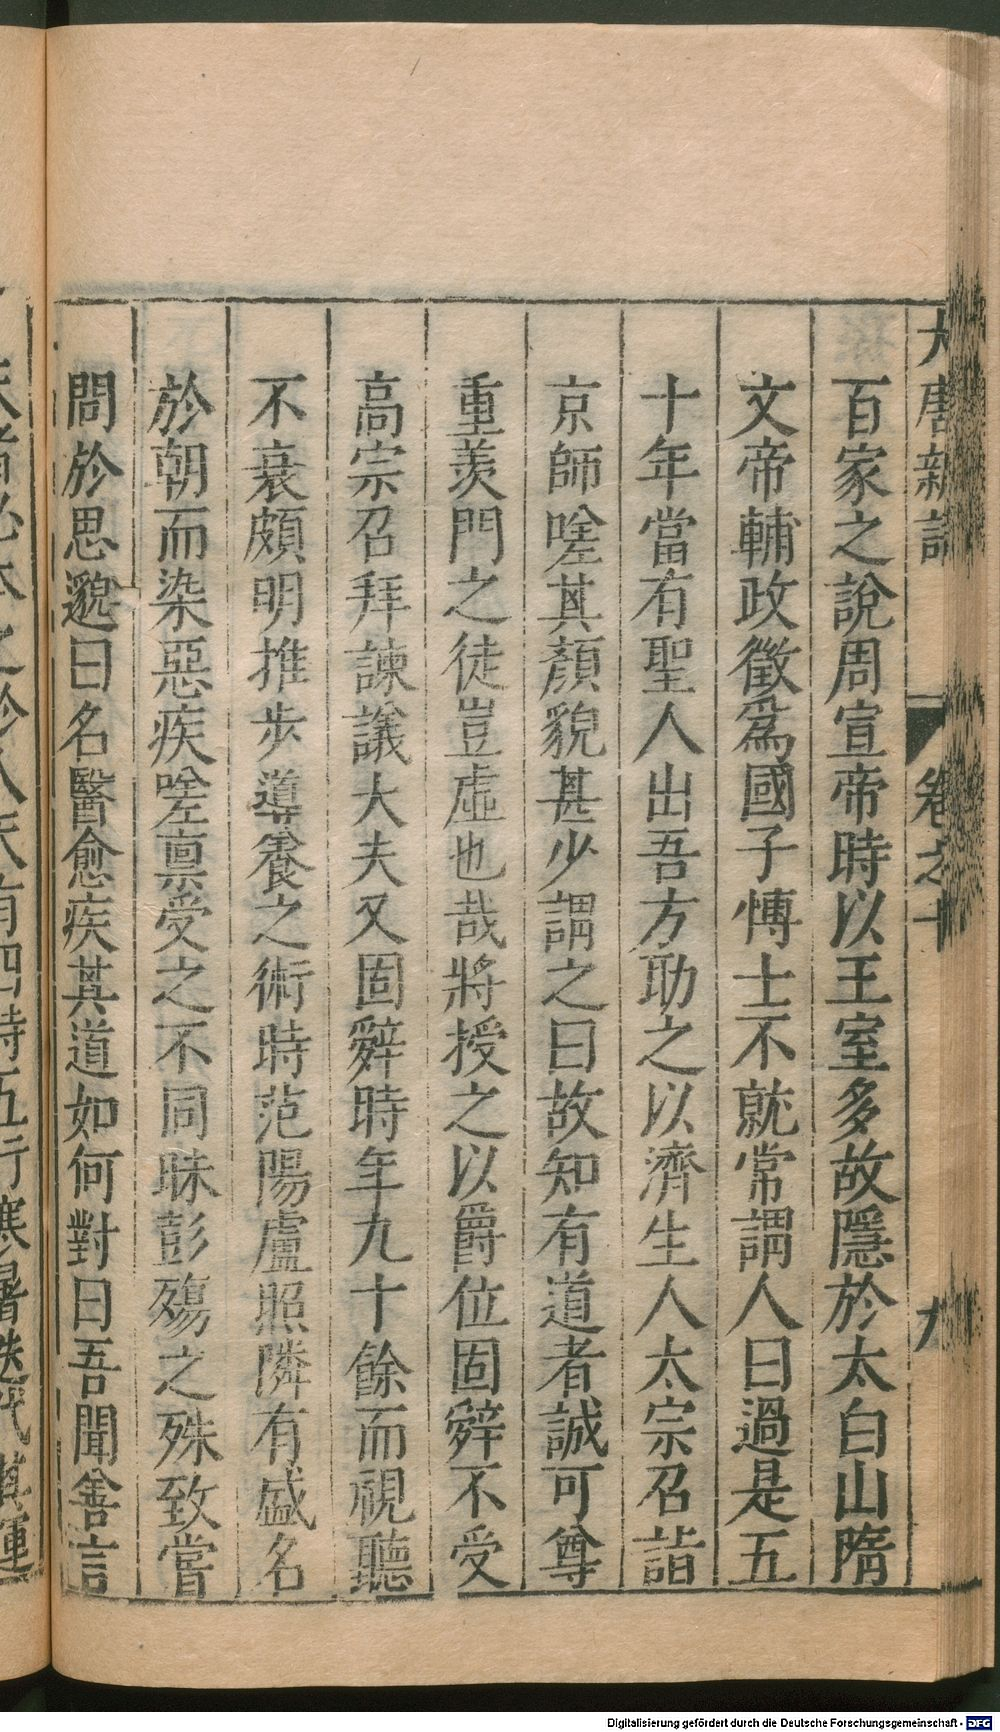 大唐新語 卷之十 九
百家之說周宣帝時以王室多故隱於太白山隋
文帝輔政徵爲國子博士不就常謂人曰過是五
十年當有聖人出吾方助之以濟生人太宗召詣
京師嗟其顏貌甚少謂之曰故知有道者誠可尊
重羨門之徒豈虛也哉將授之以爵位固辤不受
高宗召拜諫議大夫又固辤時年九十餘而視聽
不衰頗明推步導養之術時范陽盧照隣有盛名
於朝而染惡疾嗟禀受之不同昧彭殤之殊致嘗
問於思邈曰名醫愈疾其道如何對曰吾聞善言
天者必本之於人天有四時五行寒暑迭代其運
Digitalisierung gefördert durch die Deutsche Forschungsgemeinschaft - DFG